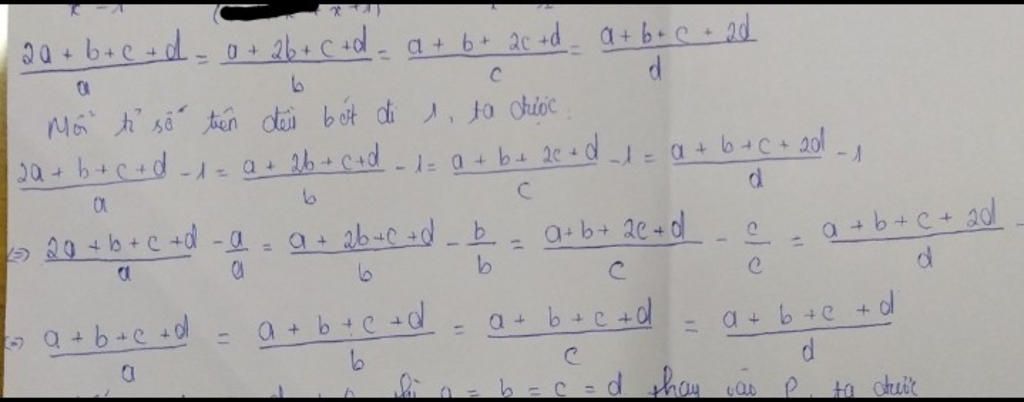 2a + b + c + d / a = a + 2b + c + d / b = a + b + 2c + d / c = a + b + c + 2d / d
Mỗi tỉ số trên đều bớt đi 1, ta được
2a + b + c + d / a - 1 = a + 2b + c + d / b - 1 = a + b + 2c + d / c - 1 = a + b + c + 2d / d - 1
<=> 2a + b + c + d / a - a / a = a + 2b + c + d / b - b / b = a + b + 2c + d / c - c / c = a + b + c + 2d / d -
<=> a + b + c + d / a = a + b + c + d / b = a + b + c + d / c = a + b + c + d / d
thì a = b = c = d thay vào P, ta được